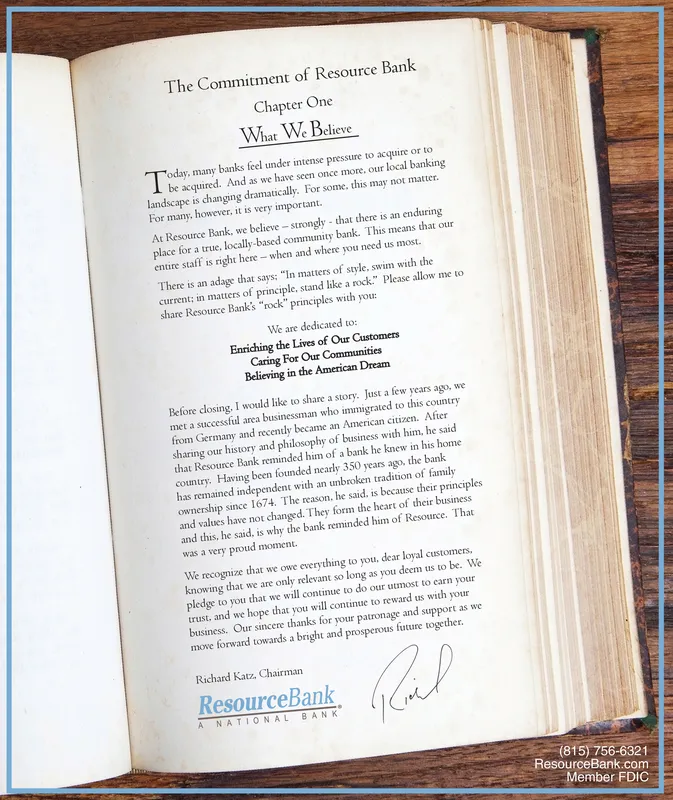 The Commitment of Resource Bank
Chapter One
What We Believe
Today, many banks feel under intense pressure to acquire or to
be acquired. And as we have seen once more, our local banking
landscape is changing dramatically. For some, this may not matter.
For many, however, it is very important.
At Resource Bank, we believe – strongly - that there is an enduring
place for a true, locally-based community bank. This means that our
entire staff is right here – when and where you need us most.
There is an adage that says; “In matters of style, swim with the
current; in matters of principle, stand like a rock.” Please allow me to
share Resource Bank's “rock” principles with you:
We are dedicated to:
Enriching the Lives of Our Customers
Caring For Our Communities
Believing in the American Dream
Before closing, I would like to share a story. Just a few years ago, we
met a successful area businessman who immigrated to this country
from Germany and recently became an American citizen. After
sharing our history and philosophy of business with him, he said
that Resource Bank reminded him of a bank he knew in his home
country. Having been founded nearly 350 years ago, the bank
has remained independent with an unbroken tradition of family
ownership since 1674. The reason, he said, is because their principles
and values have not changed. They form the heart of their business
and this, he said, is why the bank reminded him of Resource. That
was a very proud moment.
We recognize that we owe everything to you, dear loyal customers,
knowing that we are only relevant so long as you deem us to be. We
pledge to you that we will continue to do our utmost to earn your
trust, and we hope that you will continue to reward us with your
business. Our sincere thanks for your patronage and support as we
move forward towards a bright and prosperous future together.
Richard Katz, Chairman
ResourceBank®
A NATIONAL BANK
(815) 756-6321
ResourceBank.com
Member FDIC